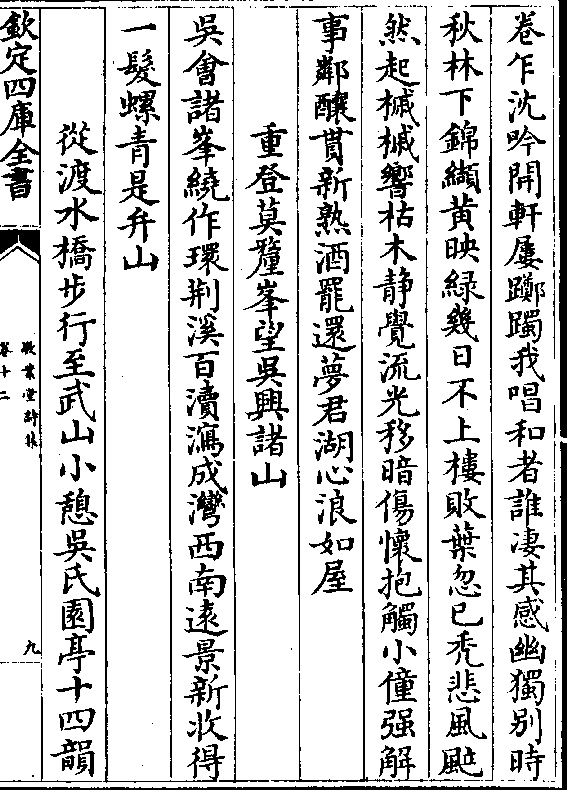 卷乍沈吟開軒屢躑躅我唱和者誰淒其感幽獨别時
秋林下錦纈黄映緑幾日不上樓敗葉忽已秃悲風颭
然起槭槭響枯木静覺流光移暗傷懷抱觸小僮强解
事鄰釀貰新熟酒罷還夢君湖心浪如屋
重登莫釐峯望吳興諸山
吳會諸峯繞作環荆溪百瀆瀉成灣西南逺景新收得
一髮螺青是弁山
從渡水橋步行至武山小憩吳氏園亭十四韻
欽定四庫全書
敬業堂詩集
卷十二
九